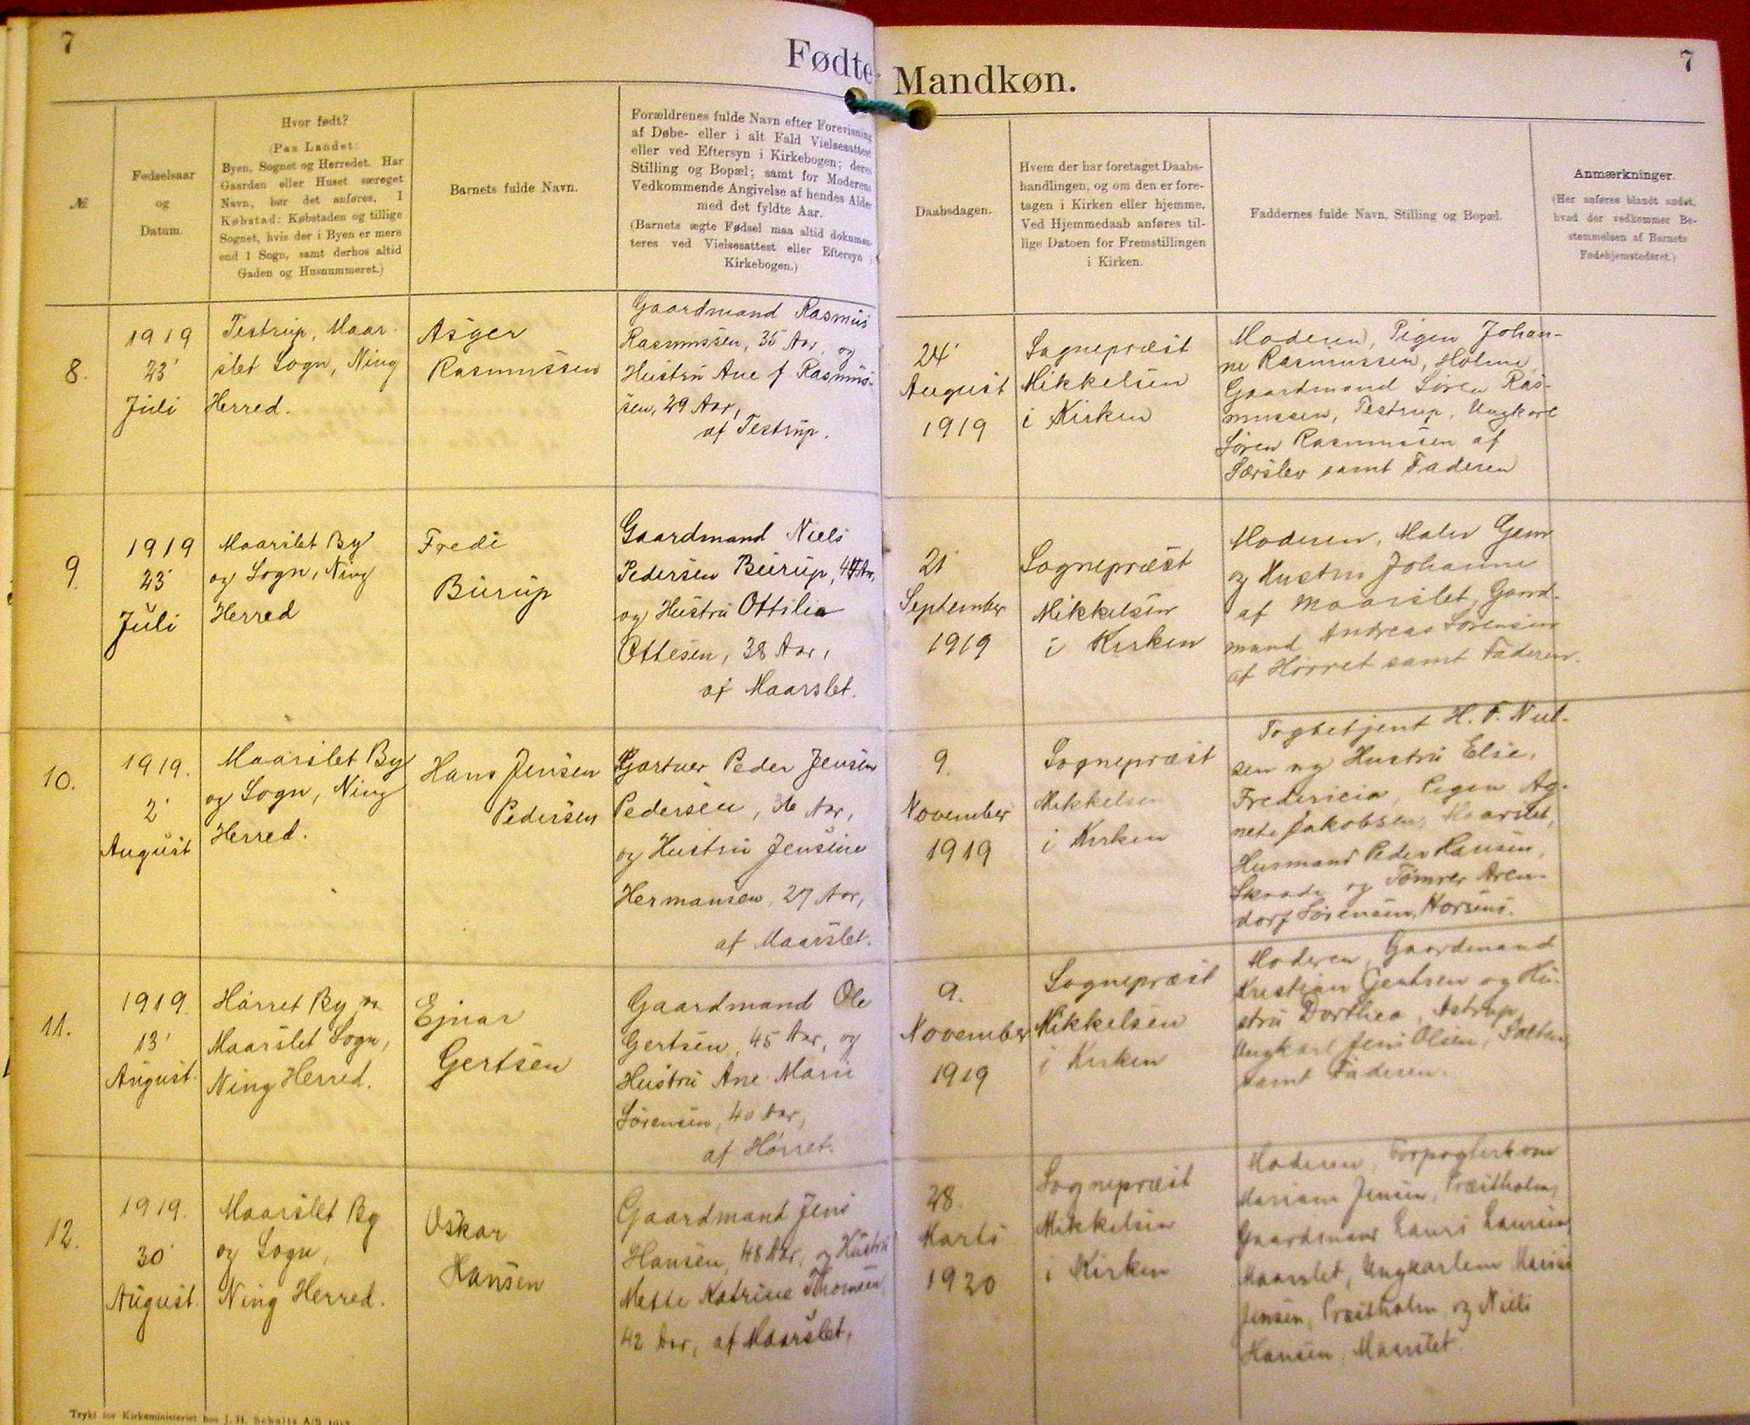 7
Fødte
Mandkøn.
7
№
Fødselsaar
og
Datum.
Hvor født?
(Paa Landet:
Byen, Sognet og Herredet. Har
Gaarden eller Huset særeget
Navn, bør det anføres. I
Købstad: Købstaden og tillige
Sognet, hvis der i Byen er mere
end 1 Sogn, samt derhos altid
Gaden og Husnummeret.)
Barnets fulde Navn.
Forældrenes fulde Navn efter Forevisning
af Døbe- eller i alt Fald Vielsesattest
eller ved Eftersyn i Kirkebogen; deres
Stilling og Bopæl; samt for Moderens
Vedkommende Angivelse af hendes Alder
med det fyldte Aar.
(Barnets ægte Fødsel maa altid dokumen-
teres ved Vielsesattest eller Eftersyn i
Kirkebogen.)
Daabsdagen.
Hvem der har foretaget Daabs-
handlingen, og om den er fore-
tagen i Kirken eller hjemme.
Ved Hjemmedaab anføres til-
lige Datoen for Fremstillingen
i Kirken.
Faddernes fulde Navn, Stilling og Bopæl.
Anmærkninger.
(Her anføres blandt andet,
hvad der vedkommer Be-
stemmelsen af Barnets
Fødehjemstedsret.)
8.
1919
23'
Juli
Testrup, Maar-
slet Sogn, Ning
Herred.
Asger
Rasmussen
Gaardmand Rasmus
Rasmussen, 35 Aar, og
Hustru Ane f. Rasmus-
sen, 29 Aar,
af Testrup.
24'
August
1919
Sognepræst
Mikkelsen
i Kirken
Moderen, Pigen Johan-
ne Rasmussen, Holme,
Gaardmand Søren Ras-
mussen, Testrup, Ungkarl
Søren Rasmussen af
Særslev samt Faderen
9.
1919
23'
Juli
Maarslet By
og Sogn, Ning
Herred
Fredi
Bürup
Gaardmand Niels
Pedersen Bürup, Aar,
og Hustru Ottilia
Ottesen, 38 Aar,
af Maarslet.
21'
September
1919
Sognepræst
Mikkelsen
i Kirken
Moderen, Maler
og Hustru Johanne
af Maarslet, Gaard-
mand Andreas Sørensen
af Hørret samt Faderen.
10.
1919.
2'
August
Maarslet By
og Sogn, Ning
Herred.
Hans Jensen
Pedersen
Gartner Peder Jensen
Pedersen, 36 Aar,
og Hustru Jensine
Hermansen, 27 Aar,
af Maarslet.
9.
November
1919
Sognepræst
Mikkelsen
i Kirken
Togbetjent H. F. Niel-
sen og Hustru Else,
Fredericia, Pigen Ag-
nete Jakobsen, Maarslet,
Husmand Peder Hansen,
Skaade og Tømrer Aren-
dorf Sørensen, Horsens.
11.
1919.
13'
August.
Hørret By,
Maarslet Sogn,
Ning Herred.
Ejnar
Gertsen
Gaardmand Ole
Gertsen, 45 Aar, og
Hustru Ane Marie
Sørensen, 40 Aar,
af Hørret.
9.
November
1919
Sognepræst
Mikkelsen
i Kirken
Moderen, Gaardmand
Kristian Gertsen og Hu-
stru Dorthea, Astrup,
Ungkarl Jens Olsen,
samt Faderen.
12.
1919.
30'
August.
Maarslet By
og Sogn,
Ning Herred.
Oskar
Hansen
Gaardmand Jens
Hansen, 48 Aar, og Hustru
Mette Katrine Thomsen,
42 Aar, af Maarslet,
28.
Marts
1920
Sognepræst
Mikkelsen
i Kirken
Moderen, Forpagterkone
Mariane Jensen, Præstholm,
Gaardmand Laurs Laursen,
Maarslet, Ungkarlene Marius
Jensen, Præstholm og Niels
Hansen, Maarslet.
Trykt for Kirkeministeriet hos J. H. Schultz A/S